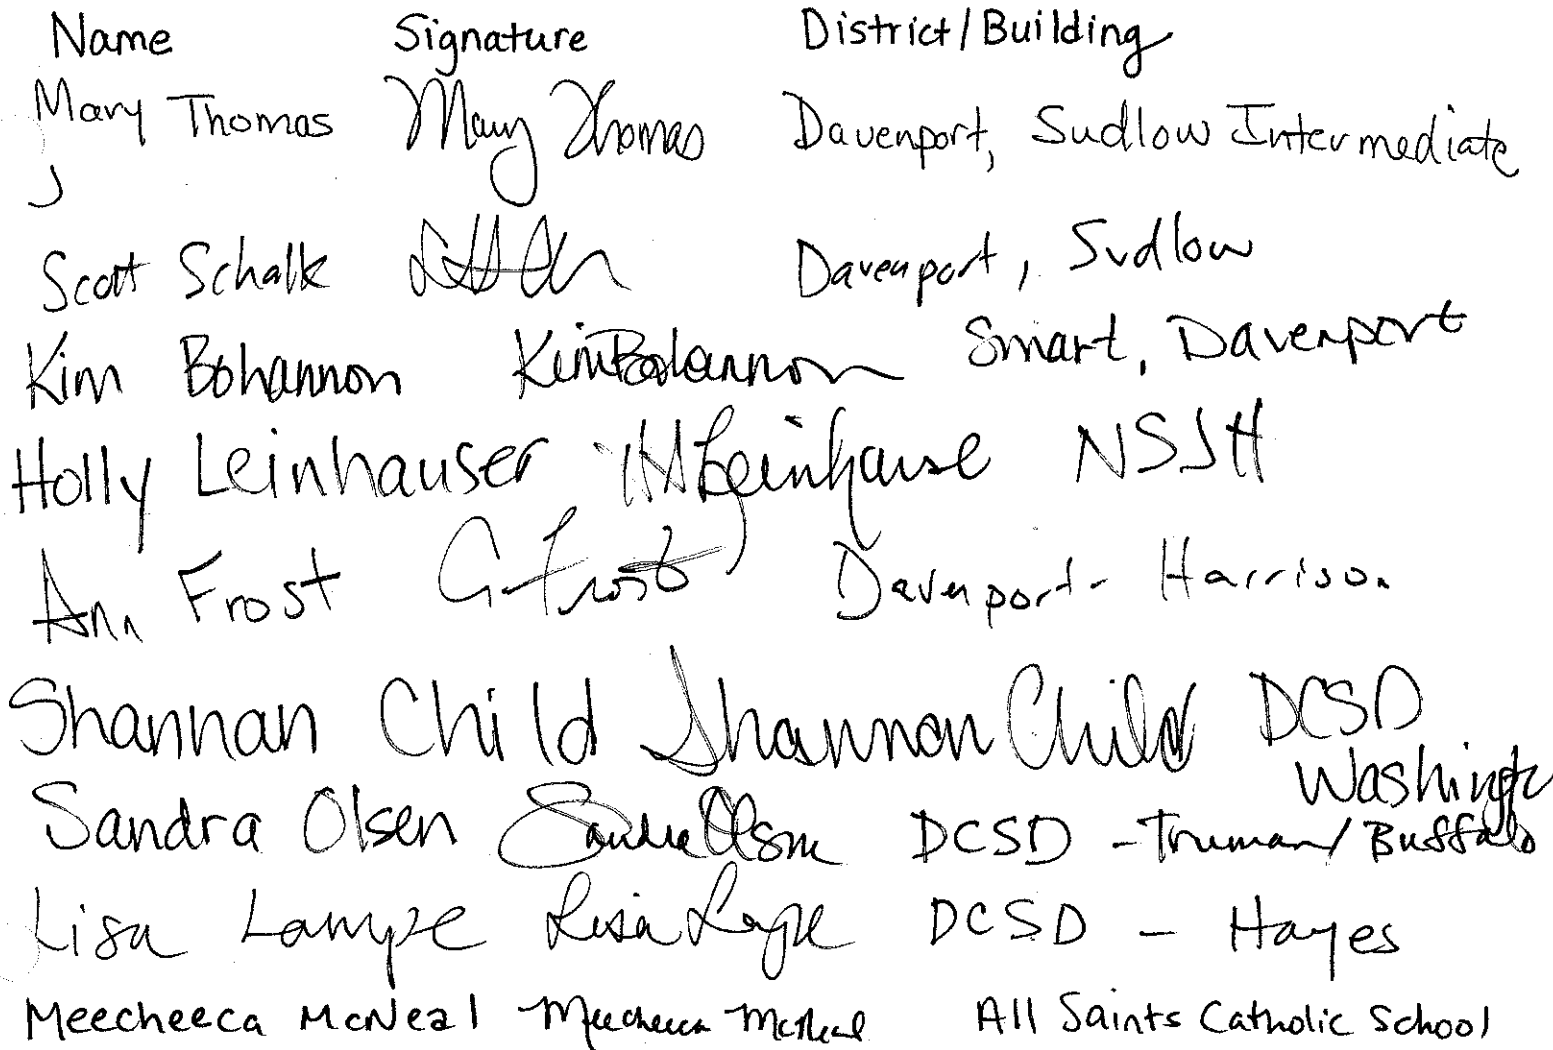 Name Signature District/Building
Mary Thomas Mary Thomas Davenport, Sudlow Intermediate
Scott Schalk Davenport, Sudlow
Kim Bohannon Kim Bohannon Smart, Davenport
Holly Leinhauser H Leinhause NSJH
Ann Frost A Frost Davenport - Harrison
Shannan Child Shannan Child DCSD
Washingto
Sandra Olsen Sandra Olsen DCSD - Truman/Buffalo
Lisa Lampe Lisa Lampe DCSD - Hayes
Meecheeca McNeal Meecheeca McNeal All Saints Catholic School